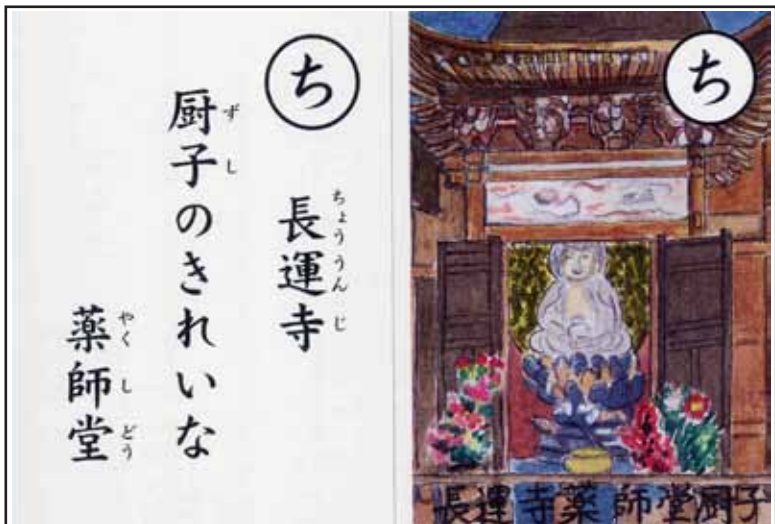 ち
長運寺
ちょううんじ
厨子のきれいな
ずし
薬師堂
やくしどう
ち
長運寺薬師堂厨子